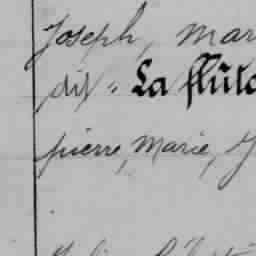 Joseph, Mar
dit " La flûte
pierre, Marie, J